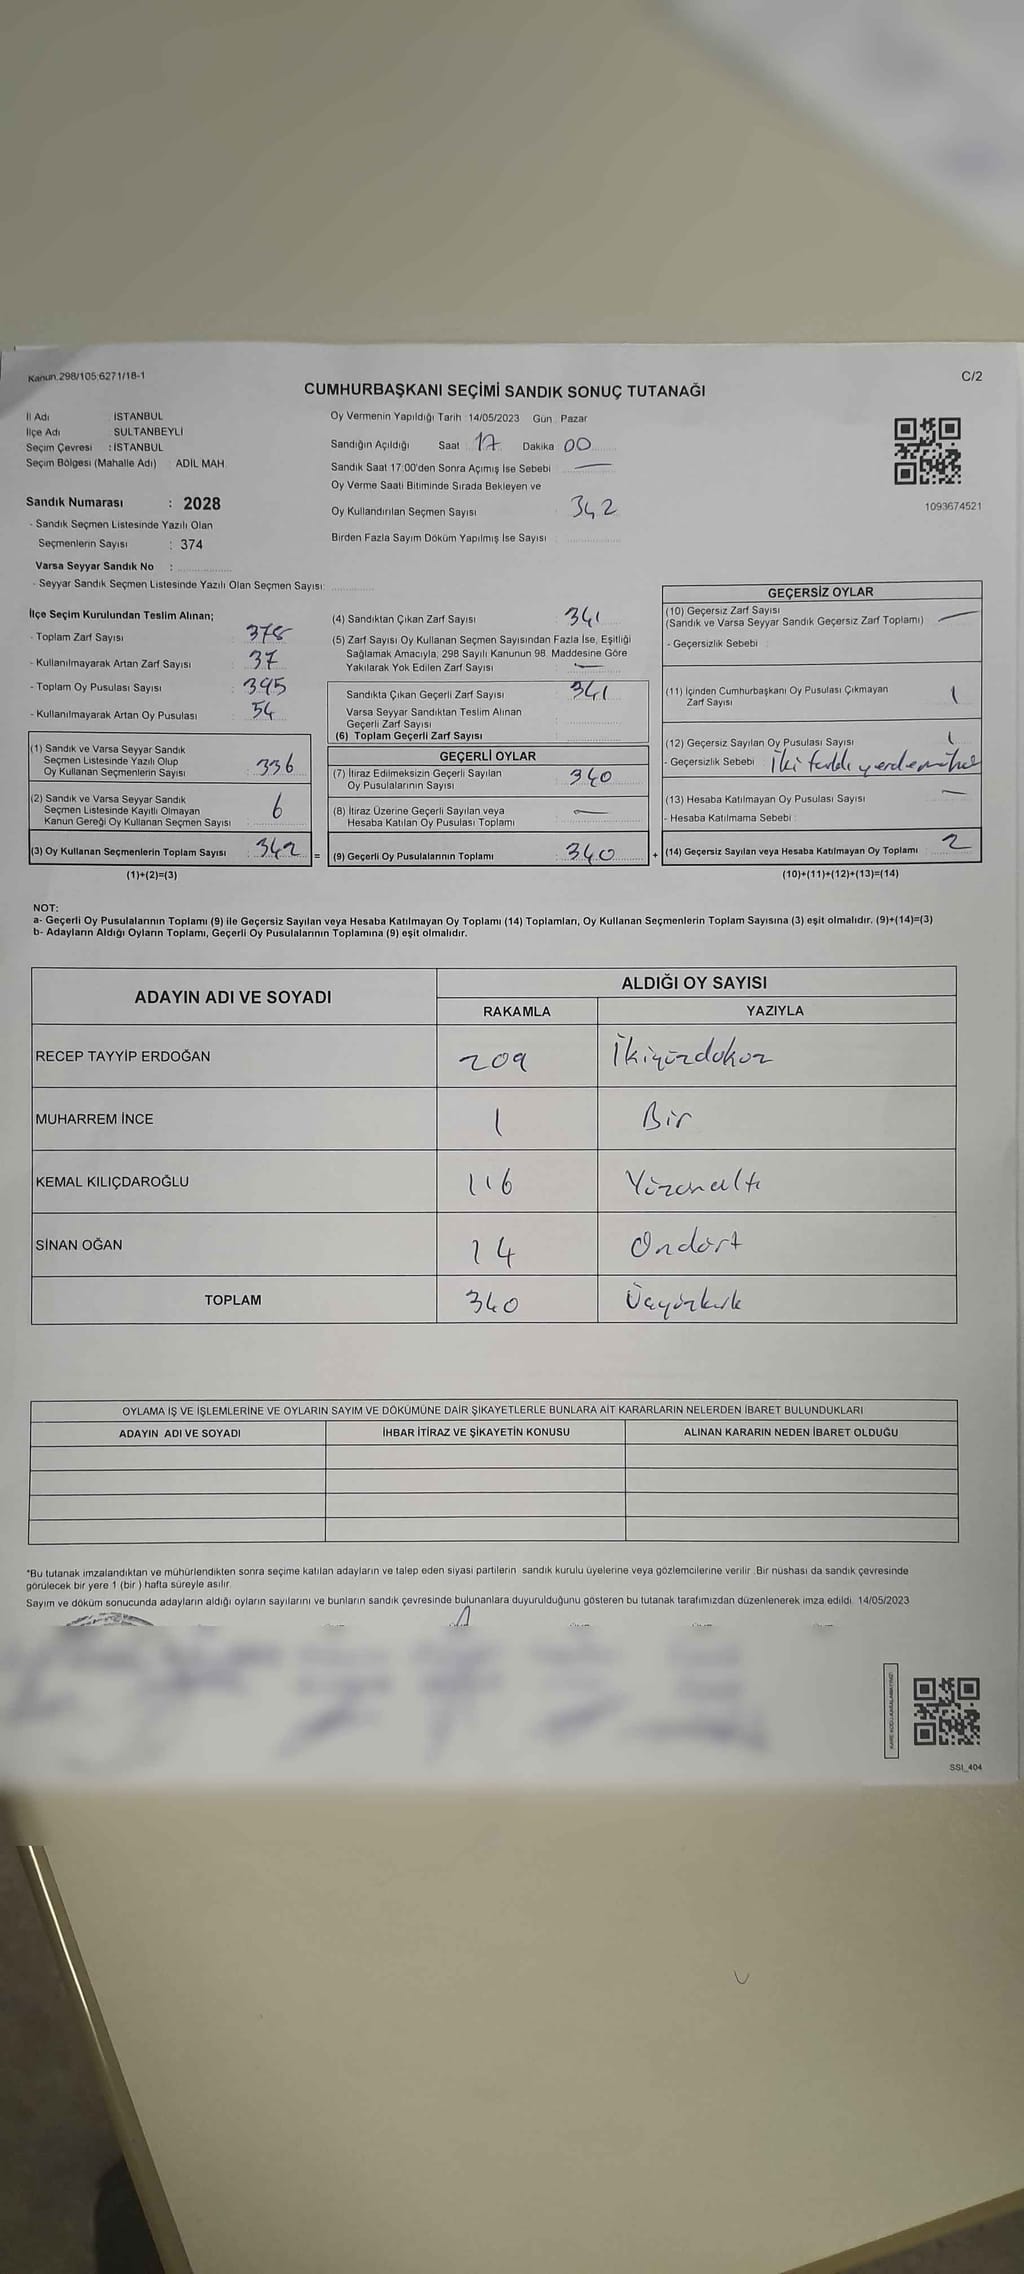 Kanun.298/105;6271/18-1
C/2
CUMHURBAŞKANI SEÇİMİ SANDIK SONUÇ TUTANAĞI
İl Adı : İSTANBUL
İlçe Adı : SULTANBEYLİ
Seçim Çevresi : İSTANBUL
Seçim Bölgesi (Mahalle Adı) : ADİL MAH.
Sandık Numarası : 2028
- Sandık Seçmen Listesinde Yazılı Olan
Seçmenlerin Sayısı : 374
Varsa Seyyar Sandık No :
- Seyyar Sandık Seçmen Listesinde Yazılı Olan Seçmen Sayısı:
Oy Vermenin Yapıldığı Tarih : 14/05/2023 Gün : Pazar
Sandığın Açıldığı Saat : 17 Dakika : 00
Sandık Saat 17:00'den Sonra Açımış İse Sebebi : —
Oy Verme Saati Bitiminde Sırada Bekleyen ve
Oy Kullandırılan Seçmen Sayısı : 342
Birden Fazla Sayım Döküm Yapılmış İse Sayısı :
1093674521
İlçe Seçim Kurulundan Teslim Alınan;
- Toplam Zarf Sayısı : 378
- Kullanılmayarak Artan Zarf Sayısı : 37
- Toplam Oy Pusulası Sayısı : 395
- Kullanılmayarak Artan Oy Pusulası : 54
(1) Sandık ve Varsa Seyyar Sandık
Seçmen Listesinde Yazılı Olup
Oy Kullanan Seçmenlerin Sayısı : 336
(2) Sandık ve Varsa Seyyar Sandık
Seçmen Listesinde Kayıtlı Olmayan
Kanun Gereği Oy Kullanan Seçmen Sayısı : 6
(3) Oy Kullanan Seçmenlerin Toplam Sayısı : 342 =
(1)+(2)=(3)
(4) Sandıktan Çıkan Zarf Sayısı : 341
(5) Zarf Sayısı Oy Kullanan Seçmen Sayısından Fazla İse, Eşitliği
Sağlamak Amacıyla, 298 Sayılı Kanunun 98. Maddesine Göre
Yakılarak Yok Edilen Zarf Sayısı : —
Sandıkta Çıkan Geçerli Zarf Sayısı : 341
Varsa Seyyar Sandıktan Teslim Alınan
Geçerli Zarf Sayısı :
(6) Toplam Geçerli Zarf Sayısı :
GEÇERLİ OYLAR
(7) İtiraz Edilmeksizin Geçerli Sayılan
Oy Pusulalarının Sayısı : 340
(8) İtiraz Üzerine Geçerli Sayılan veya
Hesaba Katılan Oy Pusulası Toplamı : —
(9) Geçerli Oy Pusulalarının Toplamı : 340 +
GEÇERSİZ OYLAR
(10) Geçersiz Zarf Sayısı
(Sandık ve Varsa Seyyar Sandık Geçersiz Zarf Toplamı) : —
- Geçersizlik Sebebi :
(11) İçinden Cumhurbaşkanı Oy Pusulası Çıkmayan
Zarf Sayısı : 1
(12) Geçersiz Sayılan Oy Pusulası Sayısı : 1
- Geçersizlik Sebebi : İki farklı yerde mühür
(13) Hesaba Katılmayan Oy Pusulası Sayısı : —
- Hesaba Katılmama Sebebi :
(14) Geçersiz Sayılan veya Hesaba Katılmayan Oy Toplamı : 2
(10)+(11)+(12)+(13)=(14)
NOT:
a- Geçerli Oy Pusulalarının Toplamı (9) ile Geçersiz Sayılan veya Hesaba Katılmayan Oy Toplamı (14) Toplamları, Oy Kullanan Seçmenlerin Toplam Sayısına (3) eşit olmalıdır. (9)+(14)=(3)
b- Adayların Aldığı Oyların Toplamı, Geçerli Oy Pusulalarının Toplamına (9) eşit olmalıdır.
ADAYIN ADI VE SOYADI
ALDIĞI OY SAYISI
RAKAMLA YAZIYLA
RECEP TAYYİP ERDOĞAN 209 İkiyüzdokuz
MUHARREM İNCE 1 Bir
KEMAL KILIÇDAROĞLU 116 Yüzonaltı
SİNAN OĞAN 14 Ondört
TOPLAM 340 Üçyüzkırk
OYLAMA İŞ VE İŞLEMLERİNE VE OYLARIN SAYIM VE DÖKÜMÜNE DAİR ŞİKAYETLERLE BUNLARA AİT KARARLARIN NELERDEN İBARET BULUNDUKLARI
ADAYIN ADI VE SOYADI İHBAR İTİRAZ VE ŞİKAYETİN KONUSU ALINAN KARARIN NEDEN İBARET OLDUĞU
*Bu tutanak imzalandıktan ve mühürlendikten sonra seçime katılan adayların ve talep eden siyasi partilerin sandık kurulu üyelerine veya gözlemcilerine verilir. Bir nüshası da sandık çevresinde
görülecek bir yere 1 (bir ) hafta süreyle asılır.
Sayım ve döküm sonucunda adayların aldığı oyların sayılarını ve bunların sandık çevresinde bulunanlara duyurulduğunu gösteren bu tutanak tarafımızdan düzenlenerek imza edildi. 14/05/2023
KARE KODU KARALAMAYINIZ!
SSI_404